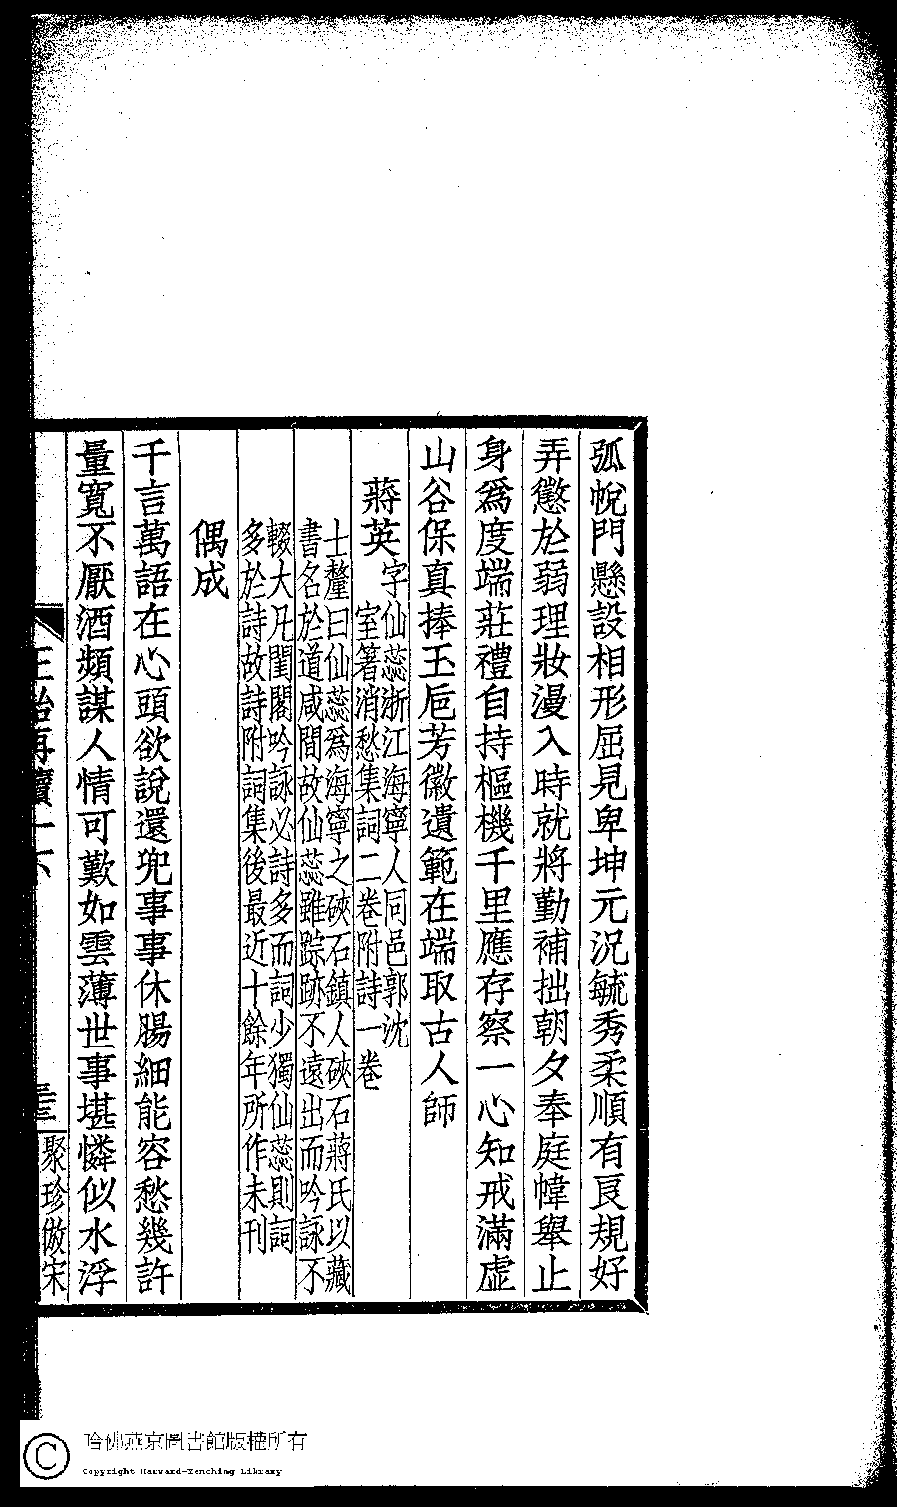 弧帨門懸設相形屈見卑坤元況毓秀柔順有良規好
弄懲於弱理妝漫入時就將勤補拙朝夕奉庭幃舉止
身爲度端莊禮自持樞機千里應存察一心知戒滿虛
山谷保真捧玉卮芳徽遺範在端取古人師
蔣英
字仙蕊浙江海寧人同邑郭沈
室箸消愁集詞二卷附詩一卷
士釐曰仙蕊爲海寧之硤石鎮人硤石蔣氏以藏
書名於道咸間故仙蕊雖踪跡不遠出而吟詠不
輟大凡閨閣吟詠必詩多而詞少獨仙蕊則詞
多於詩故詩附詞集後最近十餘年所作未刊
偶成
千言萬語在心頭欲說還兜事事休腸細能容愁幾許
量寬不厭酒頻謀人情可歎如雲薄世事堪憐似水浮
正始再續
聚珍倣宋
© 哈佛燕京圖書館版權所有
Copyright Harvard-Yenching Library